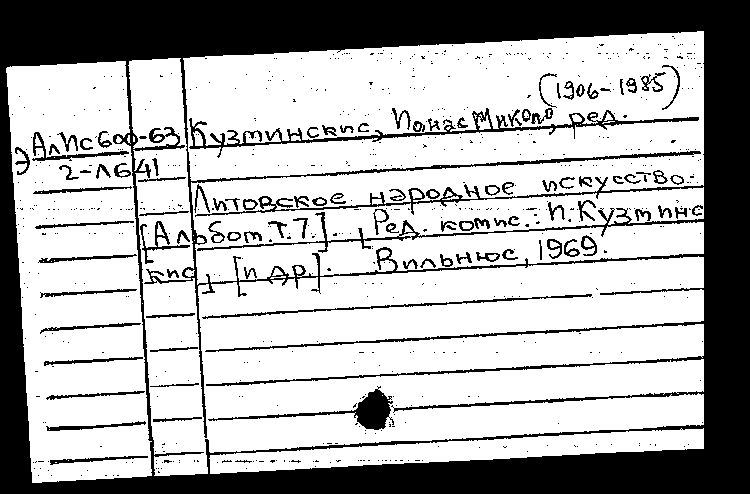 (1906-1985)
Э АлПс600-63 Кузминскис, Понас Миколо, ред.
2-Л641
Литовское народное искусство.
[Альбом. Т.7]. [Ред. комис.: П. Кузминс
кис] [и др.]. Вильнюс, 1969.